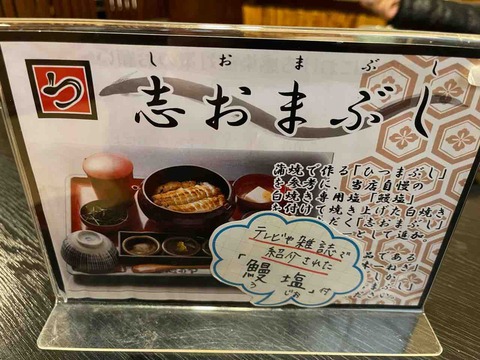 しおまぶし
う
志おまぶし
蒲焼で作る「ひつまぶし」
を参考に、当店自慢の
白焼き専用塩「鰻塩」
を付けて焼き上げた白焼き
「志おまぶし」
テレビや雑誌で
紹介された
「鰻塩」付
うなぎ じお